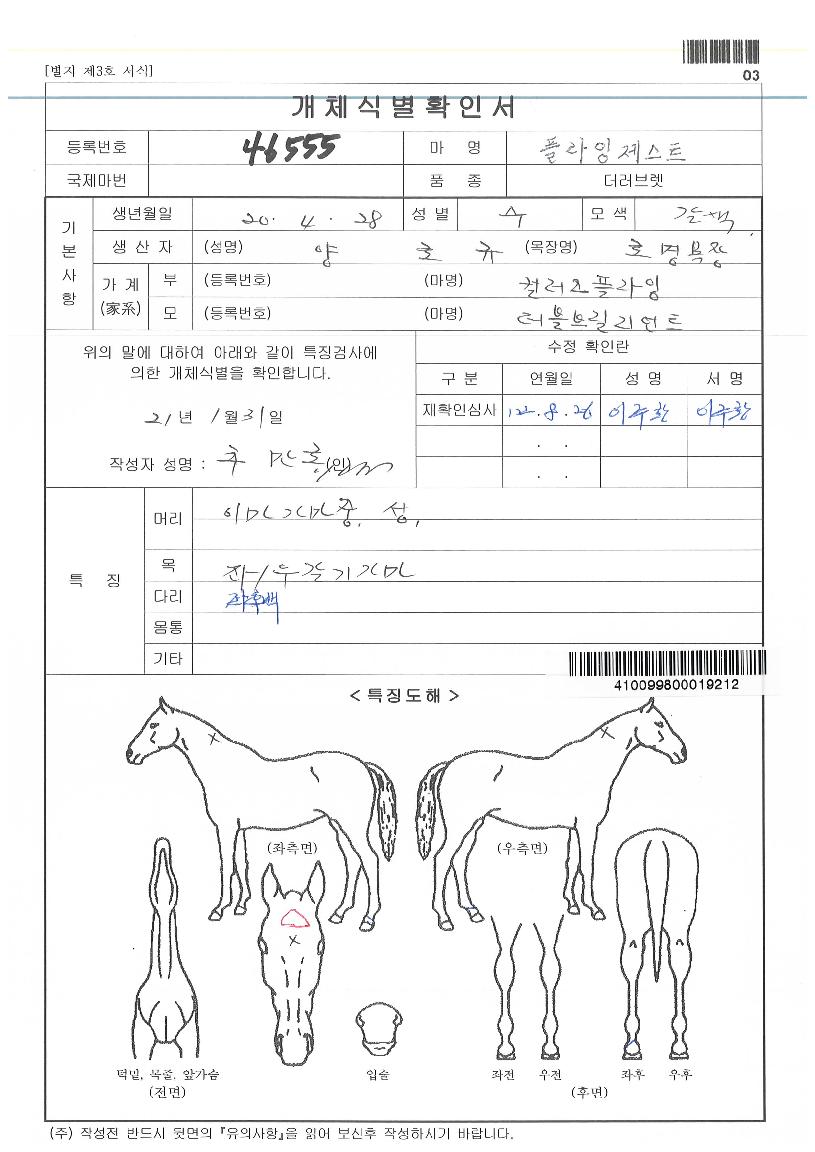 [별지 제3호 서식]
03
개체식별확인서
등록번호 46555 마 명 플라잉제스트
국제마번 품 종 더러브렛
기본사항
생년월일 20. 4. 28 성별 수 모색 갈색
생 산 자 (성명) 양 호 규 (목장명) 호명목장
가 계 (家系) 부 (등록번호) (마명) 컬러즈플라잉
모 (등록번호) (마명) 더블브릴리언트
위의 말에 대하여 아래와 같이 특징검사에
의한 개체식별을 확인합니다.
21년 1월 31일
작성자 성명 : (인)
수정 확인란
구 분 연월일 성 명 서 명
재확인심사 '22. 8. 26 이주환 이주환
. .
. .
특 징
머리 이마가마중, 성,
목 좌/우각기가마
다리 좌후백
몸통
기타
410099800019212
< 특징도해 >
(좌측면) (우측면)
턱밑, 목줄. 앞가슴 입술 좌전 우전 좌후 우후
(전면) (후면)
(주) 작성전 반드시 뒷면의 『유의사항』을 읽어 보신후 작성하시기 바랍니다.